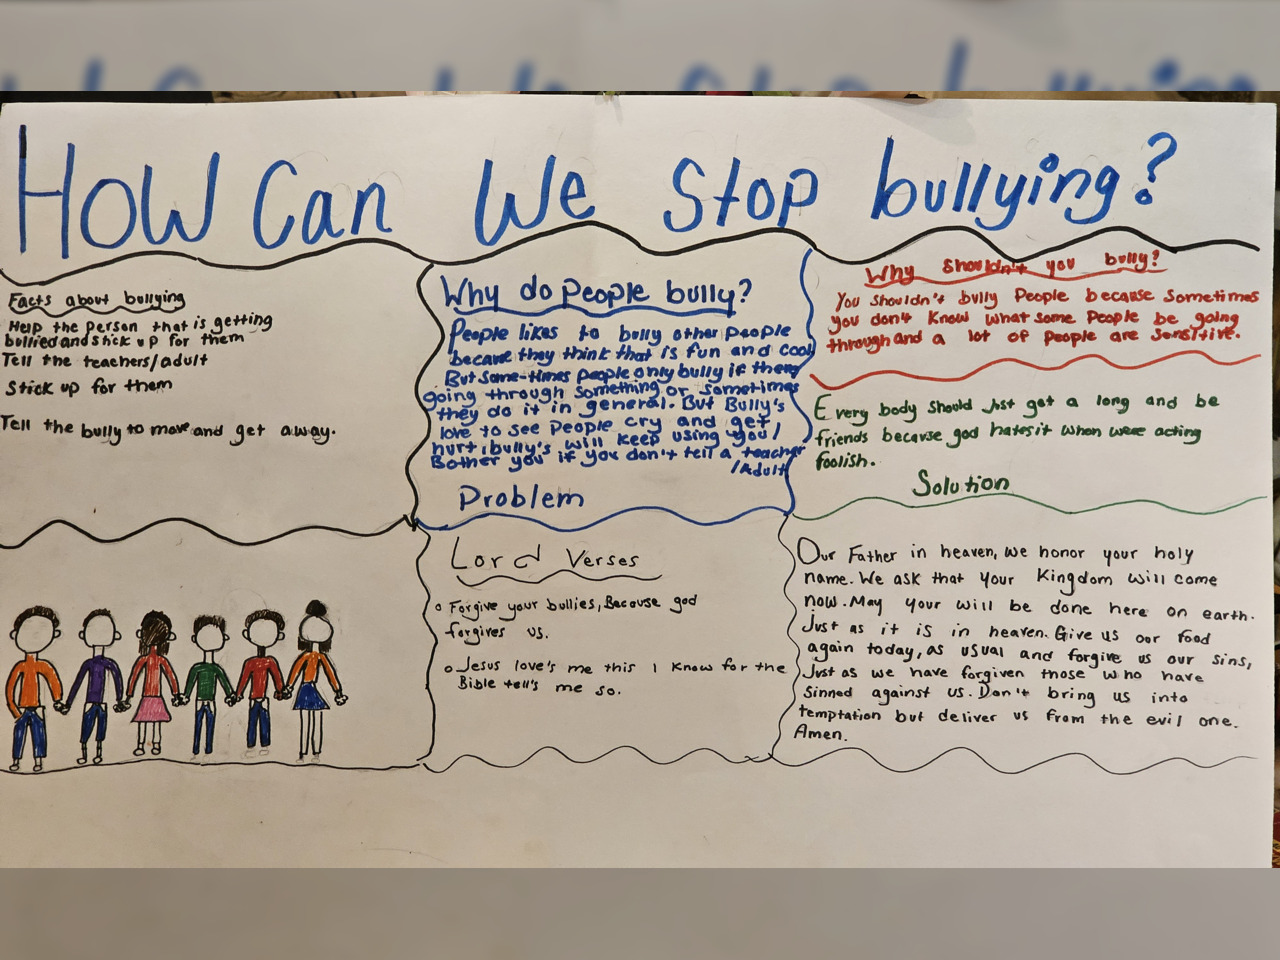 How Can We Stop bullying?
Facts about bullying
Help the person that is getting
bullied and stick up for them
Tell the teachers/adult
Stick up for them
Tell the bully to move and get away.
Why do people bully?
People likes to bully other people
becaue they think that is fun and cool
But some-times people only bully if they
going through something or sometimes
they do it in general. But Bully's
love to see people cry and get
hurt, bully's will keep using you/
Bother you if you don't tell a teacher
/Adult
Problem
Why Shouldn't you bully?
You shouldn't bully People because Sometimes
you don't know what some People be going
through and a lot of people are sensitive.
Every body should just get a long and be
friends because god hates it when were acting
foolish.
Solution
Lord Verses
Forgive your bullies, Because god
forgives us.
Jesus love's me this I know for the
Bible tell's me so.
Our Father in heaven, we honor your holy
name. We ask that your Kingdom will come
now. May your will be done here on earth.
Just as it is in heaven. Give us our food
again today, as usual and forgive us our sins,
Just as we have forgiven those who have
Sinned against us. Don't bring us into
temptation but deliver us from the evil one.
Amen.